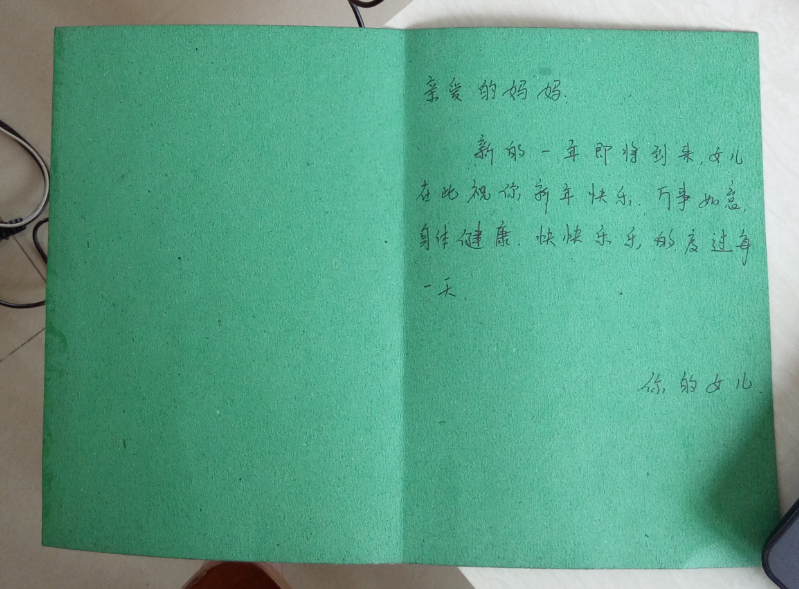 亲爱的妈妈.
新的一年即将到来,女儿
在此祝你新年快乐.万事如意,
身体健康.快快乐乐的度过每
一天.
你的女儿.